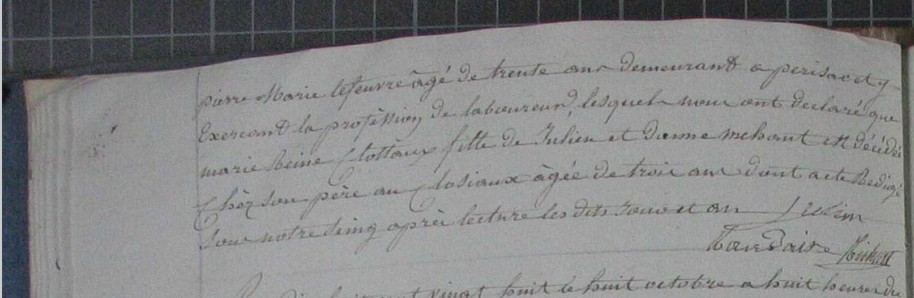 pierre Marie lefeuvre âgé de trente ans demeurant a perisac et y
Exercant la profession de laboureur, lesquels nous ont declaré que
marie Reine Clottaux fille de Julien et danne mehaut est décédée
Chéz son père au Closiaux âgée de trois ans dont acte Redigé
Sous notre seing après lecture les dits Jour et an
huit cent vingt huit le huit octobre a huit heures du